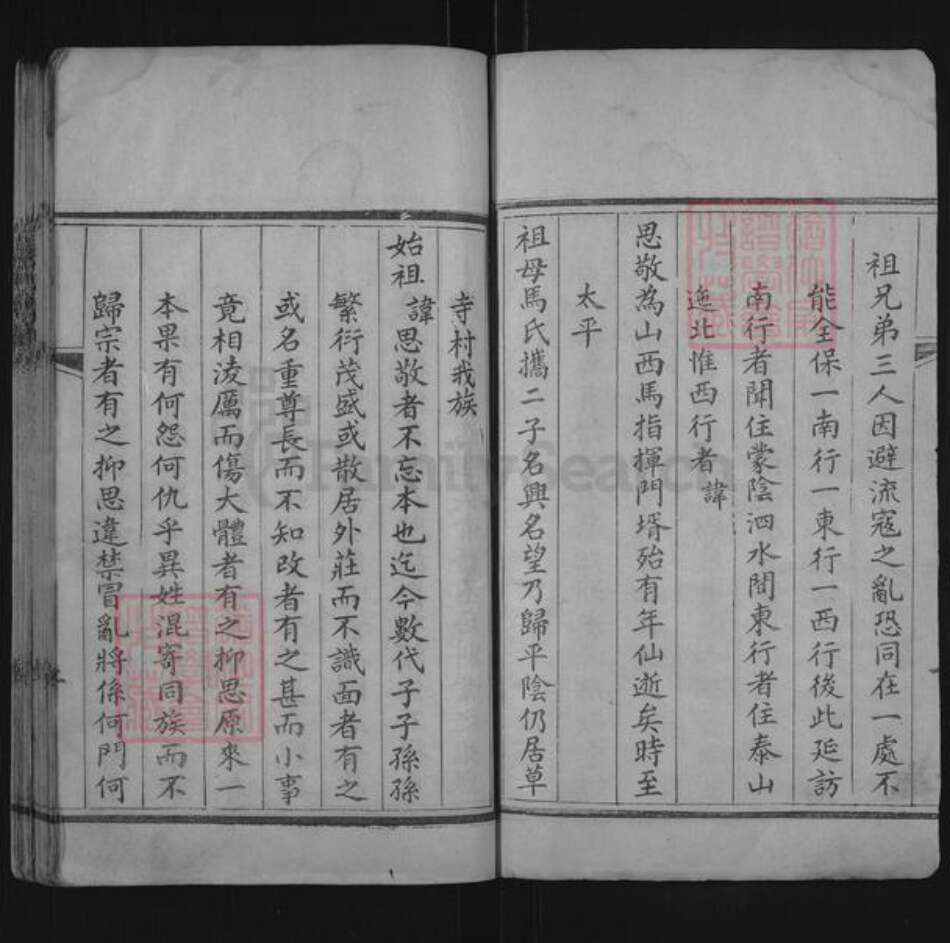 祖兄弟三人因避流寇之亂恐同在一處不
能全保一南行一東行一西行後此延訪
南行者聞住蒙陰泗水間東行者住泰山
迤北惟西行者諱
思敬為山西馬指揮門壻殆有年仙逝矣時至
太平
祖母馬氏攜二子名興名望乃歸平陰仍居草
寺村我族
始祖諱思敬者不忘本也迄今數代子子孫孫
繁衍茂盛或散居外莊而不識面者有之
或名重尊長而不知改者有之甚而小事
竟相淩厲而傷大體者有之抑思原來一
本果有何怨何仇乎異姓混寄同族而不
歸宗者有之抑思違禁冒亂將係何門何
FamilySearch